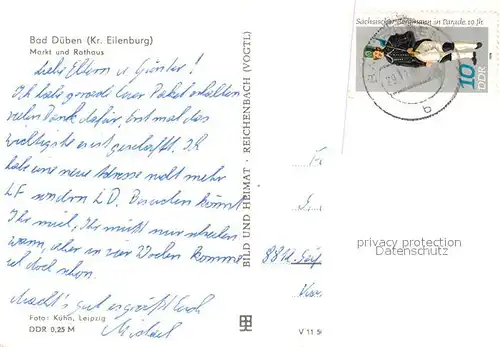 Bad Düben (Kr. Eilenburg)
Markt und Rathaus
Liebe Eltern u. Günter!
Ich habe gerade Euer Paket erhalten
vielen Dank dafür, erst mal das
wichtigste erst geschafft. Ich
habe eine neue Adresse nicht mehr
LF sondern LD. Besuchen könnt
Ihr mich, Ihr müßt nur schreiben
wann, aber in vier Wochen komme
ich doch schon.
Macht's gut es grüßt Euch
Michael
Foto: Kühn, Leipzig
DDR 0,25 M
BILD UND HEIMAT · REICHENBACH (VOGTL)
V 11 50
Sächsischer Bergmann in Parade, 19. Jh.
10
DDR
privacy protection
Datenschutz